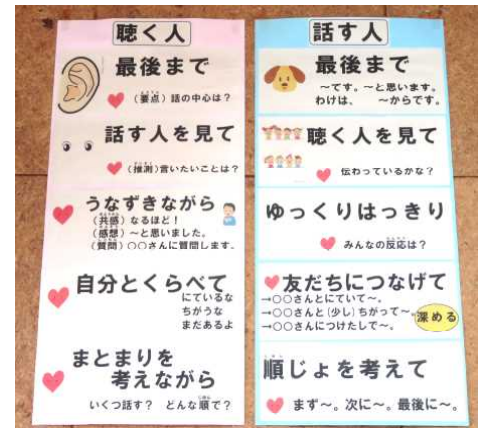 聴く人
最後まで
(要点)話の中心は?
話す人を見て
(推測)言いたいことは?
うなずきながら
(共感)なるほど!
(感想)~と思いました。
(質問)○○さんに質問します。
自分とくらべて
にているな
ちがうな
まだあるよ
まとまりを
考えながら
いくつ話す? どんな順で?
話す人
最後まで
~てす。~と思います。
わけは、 ~からです。
聴く人を見て
伝わっているかな?
ゆっくりはっきり
みんなの反応は?
友だちにつなげて
→○○さんとにていて~。
→○○さんと(少し)ちがって~。
→○○さんにつけたしで~。
深める
順じょを考えて
まず~。次に~。最後に~。